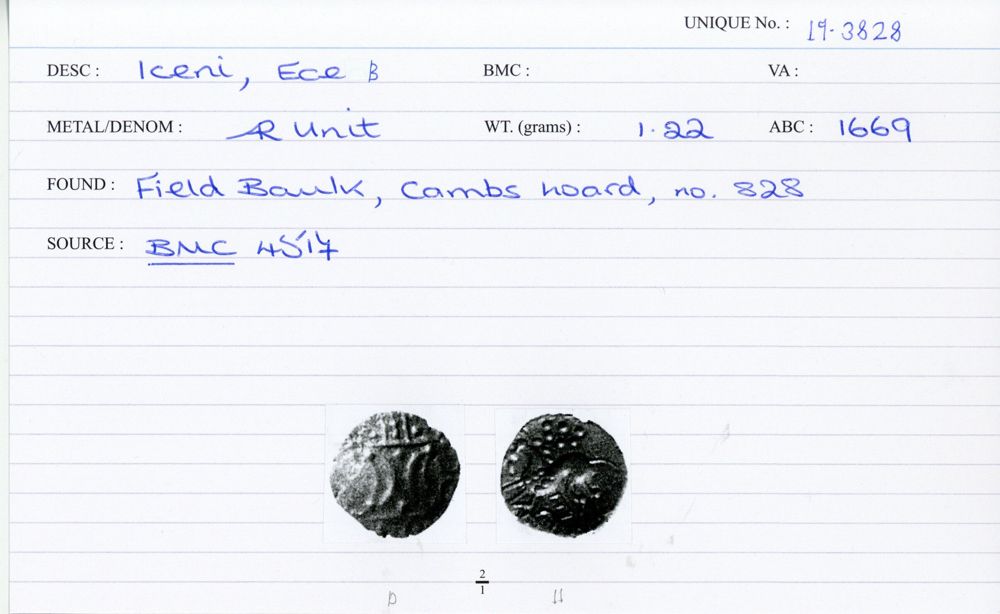 UNIQUE No. : 19-3828
DESC : Iceni, Ece B BMC : VA :
METAL/DENOM : AR Unit WT. (grams) : 1.22 ABC : 1669
FOUND : Field Baulk, Cambs hoard, no. 828
SOURCE : BMC 4517
2
1
D